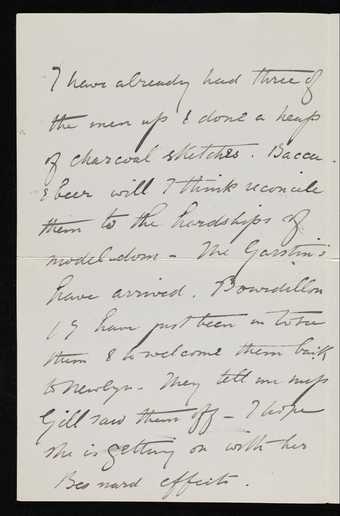 I have already had three of
the men up & done a heap
of charcoal sketches. Bacca
& beer will I think reconcile
them to the hardships of
model-dom - The Garstins
have arrived. Bourdillon
& I have just been in to see
them & welcome them back
to Newlyn - They tell me Miss
Gill saw them off - I hope
she is getting on with her
Besnard effects.